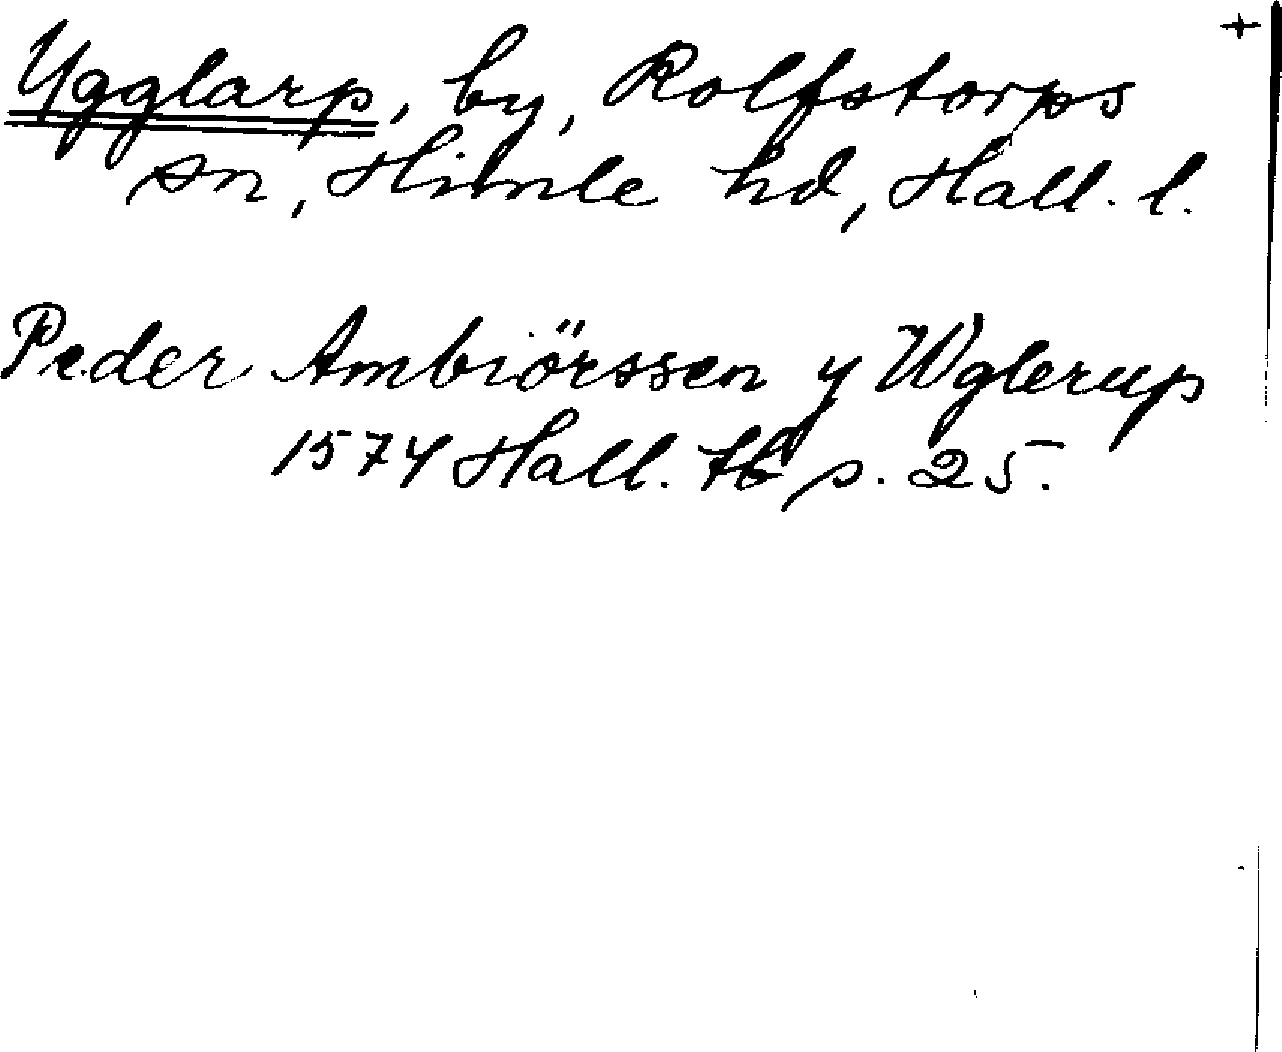 +
Ygglarp, by, Rolfstorps
sn, Himle hd, Hall. l.
Peder Ambiörssen y Wglerup
1574 Hall. tb s. 25.